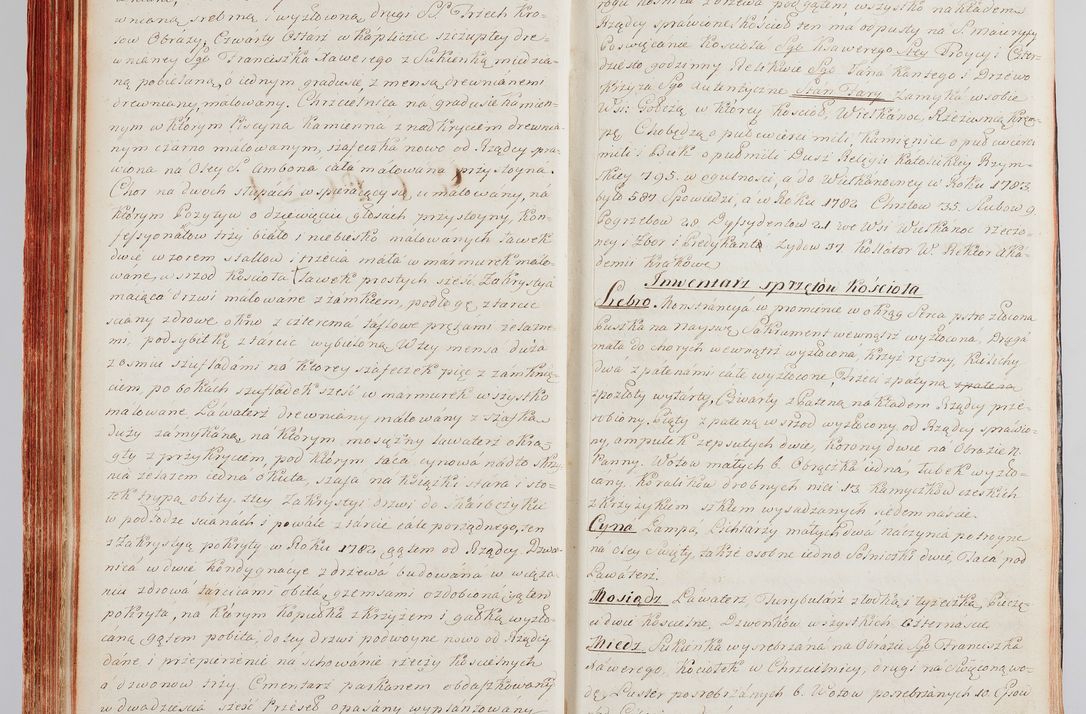 wnianą srebrną i wyzłoconą, drugi SS. Trzech Kro-
low Obrazy, Czwarty Ołtarz w kapliczce szczupłey dre-
wnianey Sgo Franciszka Xawerego z Sukienką miedzia-
ną pobielaną, o iednym gradusie z mensą drewnianemi
drewniany, malowany. Chrzcielnica na gradusie kamien-
nym w którym Piscyna kamienna z nadkryciem drewnia-
nym czarno malowanym, szafeczka nowo od Rządcy spra-
wiona na Oley S. Ambona cała malowana przystoyna.
Chor na dwoch słupach wspieraiący się, umalowany, na
którym Pozytyw o dziewięciu głosach przystoyny, Kon-
fessyonałow trzy biało i niebiesko malowanych ławek
dwie wzorem stallow i trzecia mała w marmurek malo-
wane, w srzod kościoła ławek prostych sześć. Zakrystya
maiąca drzwi malowane z zamkiem, podłogę z tarcic
sciany zdrowe okno z czterema taflowe prętami żelazne-
mi, podsybitkę z tarcic wybieloną W tey mensa duża
z osmiu szufladami na ktorey szafeczek pięć z zamknię-
ciem, po bokach szufladek sześć w marmurek wszystko
malowane. Lawaterz drewniany malowany z szafką
duży zamykaną, na którym mosiężny lawaterz okrą-
gły z przykryciem, pod którym taca cynowa nadto skrzy-
nia żelazem iedna okuta, szafa na książki stara i sto-
łek trupą obity. z tey Zakrystyi drzwi do skarbczyku
w podłodze scianach i powale z tarcic całe porządnego, ten
z Zakrystyą pokryty w Roku 1782 gątem od Rządcy Dzwo-
nica w dwie kondygnacye z drzewa budowana w wiąza-
niu zdrowa tarcicami obita, gzemsami ozdobiona gątem
pokryta, na którym kopułka z krzyżem i gałką wyzło-
caną gątem pobita, do tey drzwi podwoyne nowo od Rządcy
dane i przepierzenie na schowanie rzeczy kościelnych
a dzwonow trzy. Cmentarz parkanem obdaszkowany
w dwadzieścia sześć Przęseł opasany wyplantowany
Rządcy sprawione, kościoł ten ma odpusty na S. Maurycy
Poswięcanie Kościoła Sgo Xawerego, Stey Troycy i Czter-
dziesto godzinny Relikwie Sgo Jana Kantego i Drzewo
Krzyża Sgo Autentyczne Stan Fary zamyka w sobie
Wsi: Gołczą w ktorey kościoł, Wielkanoc, Rzeżusnią, Krę-
pę, Chobędzą o puł cwierci mili, Kamienice o puł cwierci
mili i Buk o puł mili Dusz Religii Katolickiey Rzym-
skiey 795. w ogulności, a do Wielkanocney w Roku 1783
było 587 Spowiedzi, a w Roku 1782 Chrztow 35. Slubow 9.
Pogrzebow 28 Dyssydentow 21 we Wsi Wielkanoc rzeczo-
ney i Zbor i Predykanta Zydow 37 Kollator W. Rektor Aka-
demii Krakows.
Inwentarz sprzętow kościoła
Srebro. Monstrancyia w promienie w okrąg Serca pstro złocona
Puszka na Nayswię. Sakrament wewnątrz wyzłocona, Druga
mała do chorych wewnątrz wyzłocona, krzyż ręczny, kielichy
dwa z patenami całe wyzłocone, Trzeci z patyną
spozłoty wytarty, Czwarty z Pateną nakładem Rządcy prze-
robiony, Piąty z pateną w srzod wyzłocony od Rządcy sprawio-
ny, ampułek zepsutych dwie, Korony dwie na Obrazie N.
Panny. Wotow małych 6. Obrączka iedna, łubek wyzło-
cany. Koralikow drobnych nici 13. Kamyczkow czeskich
z krzyżykiem szkłem wysadzanych siedemnaście.
Cyna Lampa, Lichtarzy małych dwa naczynca potroyne
na Oley Swięty, także osobne iedno Solniczki dwie, Taca pod
Lawaterz.
Mosiądz Lawaterz, Turybularz z łodką i łyżeczką, Pieczę-
ci dwie kościelne, Dzwonkow wszystkich czternaście.
Miedz Sukienka wysrebrzana na Obrazie Sgo Franciszka
Xawerego, Kociołek w Chrzcielnicy, drugi na swięconą wo-
dę, Luster posrobrzanych 6. Wotow posrebrzanych 10.